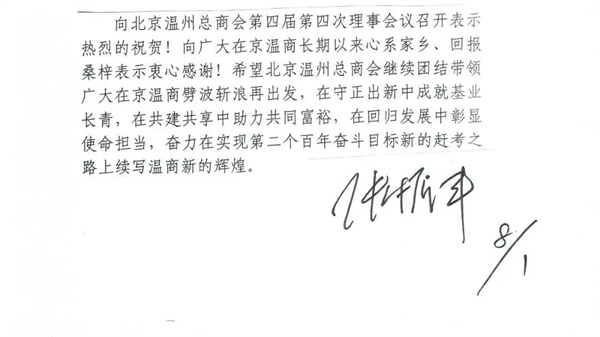 向北京温州总商会第四届第四次理事会议召开表示
热烈的祝贺！向广大在京温商长期以来心系家乡、回报
桑梓表示衷心感谢！希望北京温州总商会继续团结带领
广大在京温商劈波斩浪再出发，在守正出新中成就基业
长青，在共建共享中助力共同富裕，在回归发展中彰显
使命担当，奋力在实现第二个百年奋斗目标新的赶考之
路上续写温商新的辉煌。
8/1